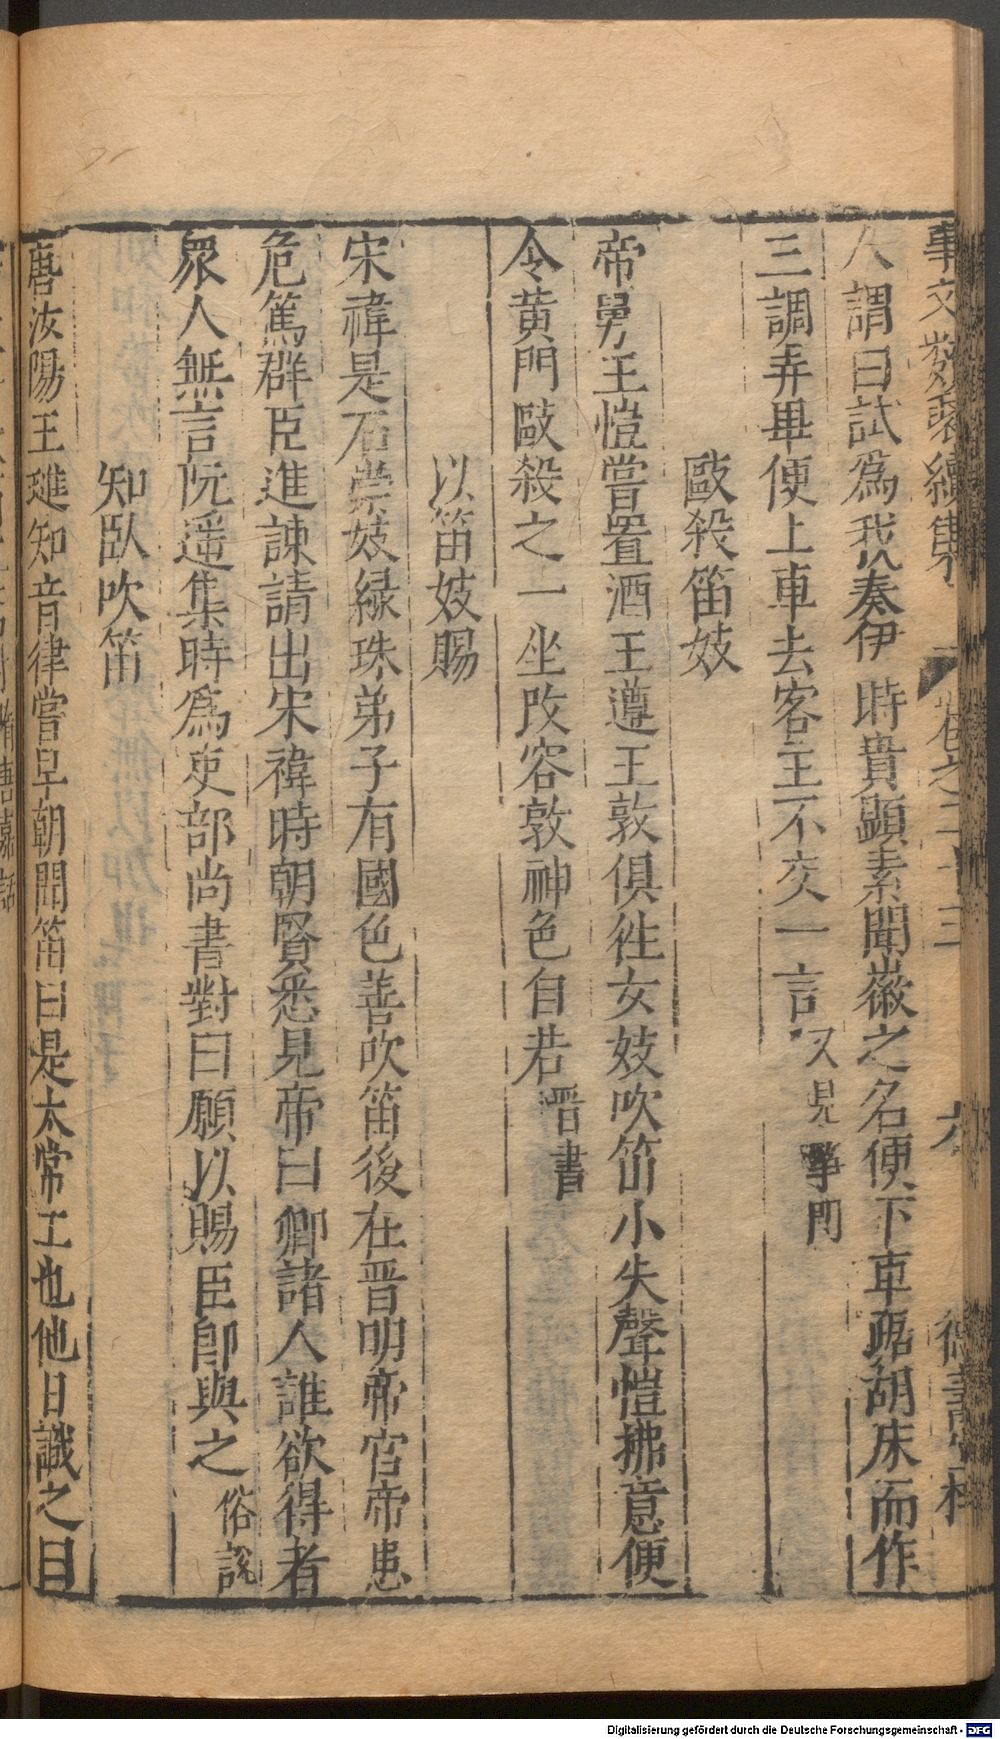 事文類聚續集 卷之二十三 六 德壽堂梓
人謂曰試爲我一奏伊時貴顯素聞徽之名便下車踞胡床而作
三調弄畢便上車去客主不交一言又見箏門
敺殺笛妓
帝舅王愷嘗置酒王遵王敦俱徃女妓吹笛小失聲愷拂意便
令黄門敺殺之一坐改容敦神色自若晋書
以笛妓賜
宋禕是石崇妓緑珠弟子有國色善吹笛後在晋明帝宫帝患
危篤群臣進諫請出宋禕時朝賢悉見帝曰卿諸人誰欲得者
衆人無言阮遥集時爲吏部尚書對曰願以賜臣卽與之俗說
知臥吹笛
唐汝陽王璡知音律嘗早朝聞笛曰是太常工也他日識之目
隋唐嘉話
Digitalisierung gefördert durch die Deutsche Forschungsgemeinschaft - DFG